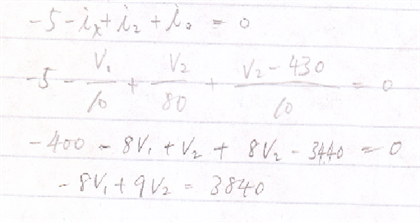 -5 - iₓ + i₂ + i₃ = 0
-5 - V₁/10 + V₂/80 + (V₂ - 430)/10 = 0
-400 - 8V₁ + V₂ + 8V₂ - 3440 = 0
-8V₁ + 9V₂ = 3840